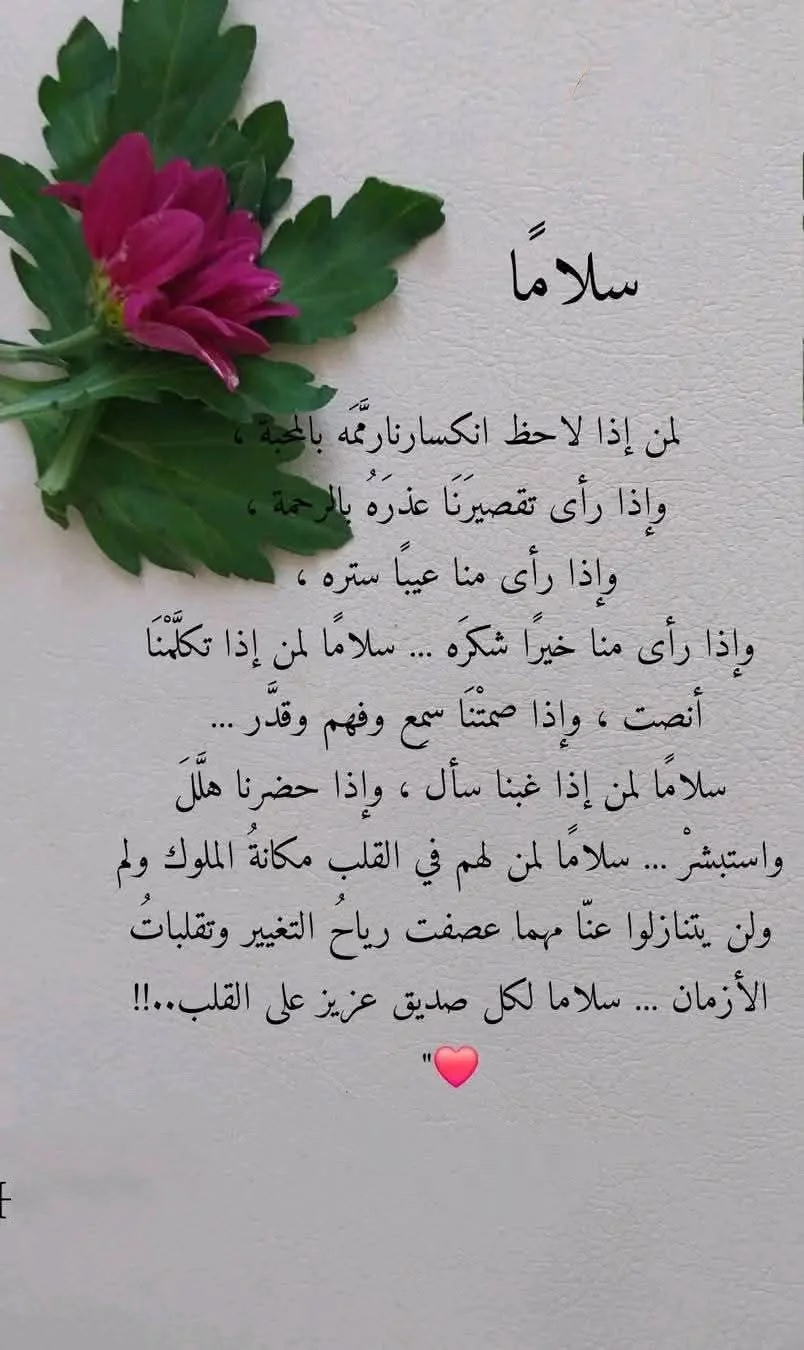 سلامًا
لمن إذا لاحظ انكسارنارمَّمَه بالمحبة ،
وإذا رأى تقصيرَنَا عذرَهُ بالرحمة ،
وإذا رأى منا عيبًا ستره ،
وإذا رأى منا خيرًا شكرَه ... سلامًا لمن إذا تكلَّمْنَا
أنصت ، وإذا صمتْنَا سمع وفهم وقدَّر ...
سلامًا لمن إذا غبنا سأل ، وإذا حضرنا هلَّلَ
واستبشرْ ... سلامًا لمن لهم في القلب مكانةُ الملوك ولم
ولن يتنازلوا عنّا مهما عصفت رياحُ التغيير وتقلباتُ
الأزمان ... سلاما لكل صديق عزيز على القلب..!!
❤️"